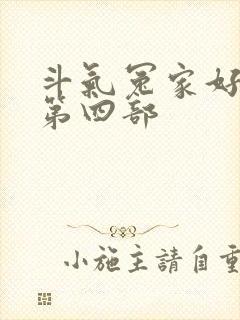 斗氣冤家好
第四部
小施主請自重